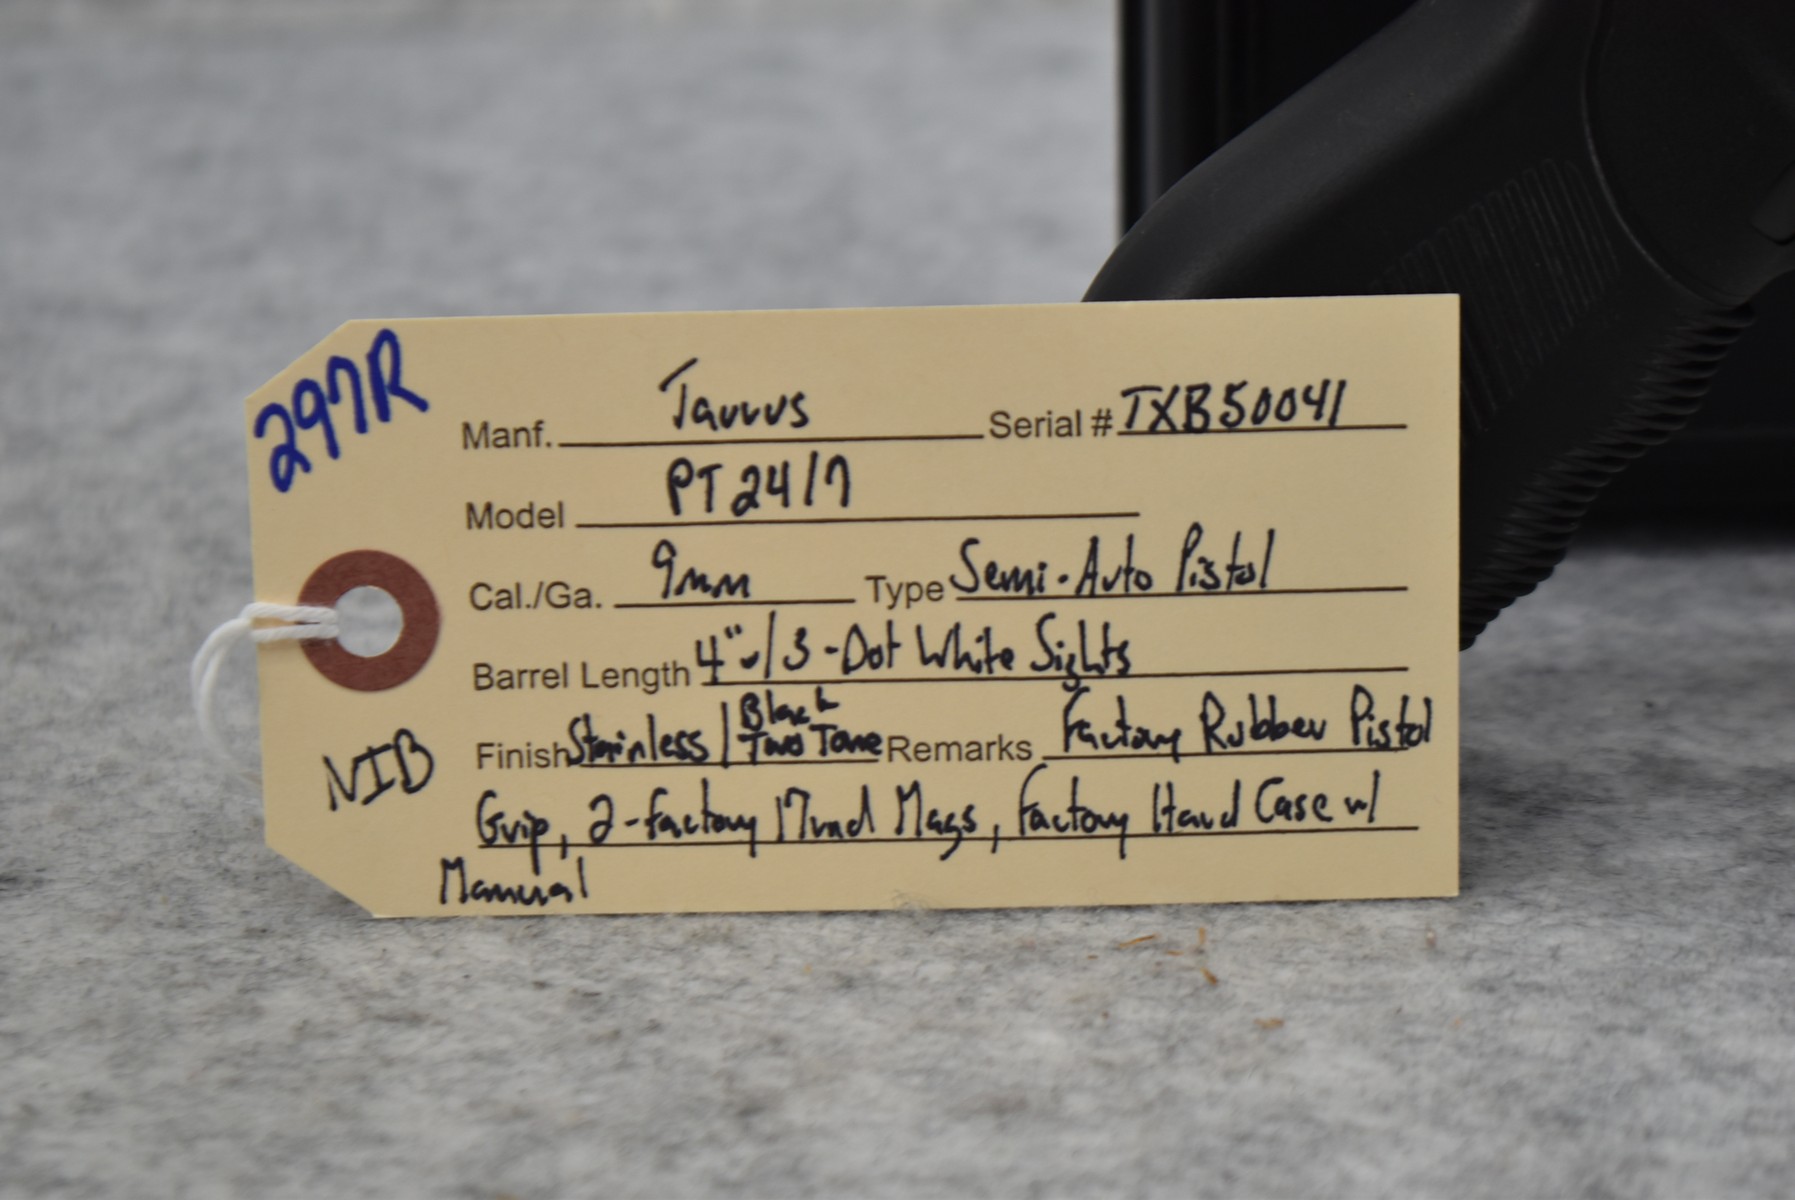 297R
Manf. Taurus Serial # TXB50041
Model PT 24/7
Cal./Ga. 9mm Type Semi-Auto Pistol
Barrel Length 4" w/ 3-Dot White Sights
Finish Stainless/Black Two Tone Remarks Factory Rubber Pistol
Grip, 2-factory 17rnd Mags, Factory Hard Case w/
Manual
NIB